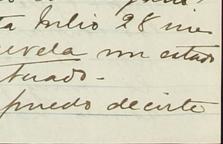 ta Julio 28 me
revela un estado
tuado.
puedo decirte